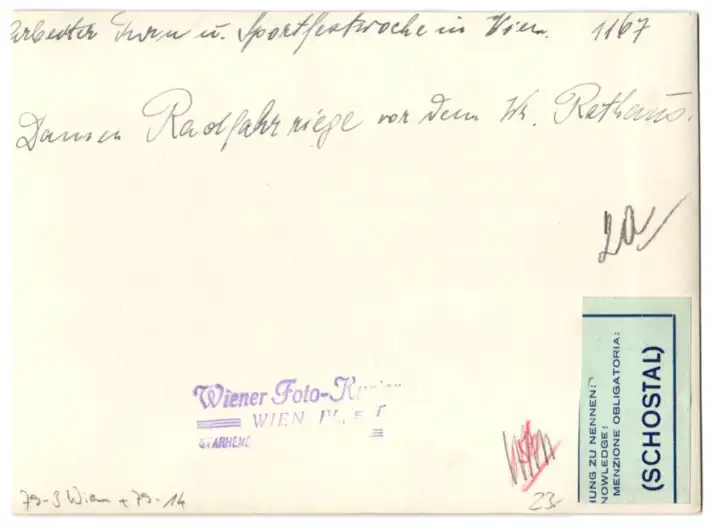 Arbeiter Turn u. Sportfestwoche in Wien. 1167
Damen Radfahrriege vor dem W. Rathaus.
2a
Wiener Foto-Kurier
WIEN
STARHEM
UNG ZU NENNEN:
NOWLEDGE:
MENZIONE OBLIGATORIA:
(SCHOSTAL)
79-3 Wien + 79-14
23.-